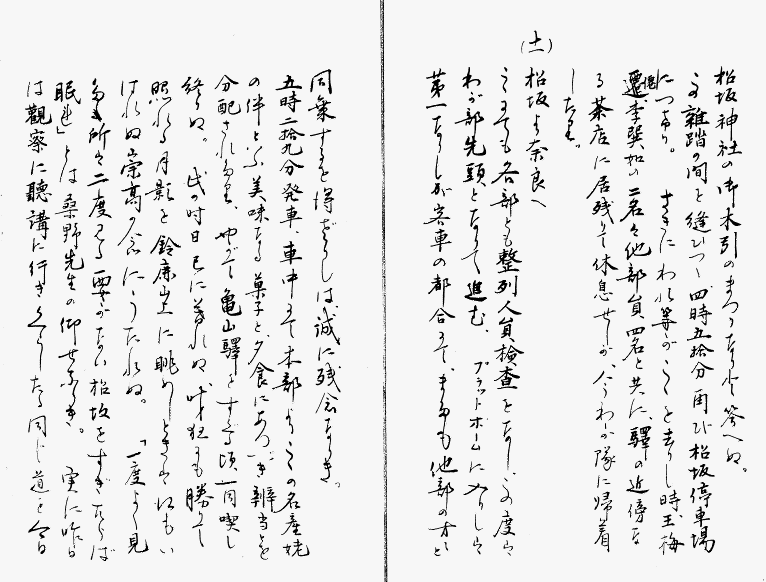 松坂神社の御木引のまつりなりと答へぬ。
この雑踏の間を縫ひつゝ四時五拾分再び松坂停車場
につきぬ。さきにわれ等がこゝを去りし時、玉梅
還、李巽如の二名は他部員四名と共に、驛の近傍な
る茶店に居残りて休息せしが、今わが隊に帰着
したり。
(十一)
松坂より奈良へ
こゝにても各部とも整列人員検査をなし、この度は
わが部先頭となりて進む、プラットホームに入りしは
第一なりしが客車の都合にて、またも他部の方と
同乗するを得ざりしは誠に残念なりき。
五時二拾九分発車、車中にて本部よりこの名産姥
の伴といふ美味なる菓子と夕食にあつべき辨当とを
分配されたり、やがて亀山驛をすぐる頃一同喫し
終りぬ。此の時日已に暮れぬ
照れる月影を鈴鹿山上に眺め
はれぬ崇高の念にうたれぬ。「一度よく見
たる所は二度見る要がない松坂をすぎたらば
眠れ」とは桑野先生の仰せなりき。実に昨日
は観察に聴講に行きくらしたる同じ道を今日